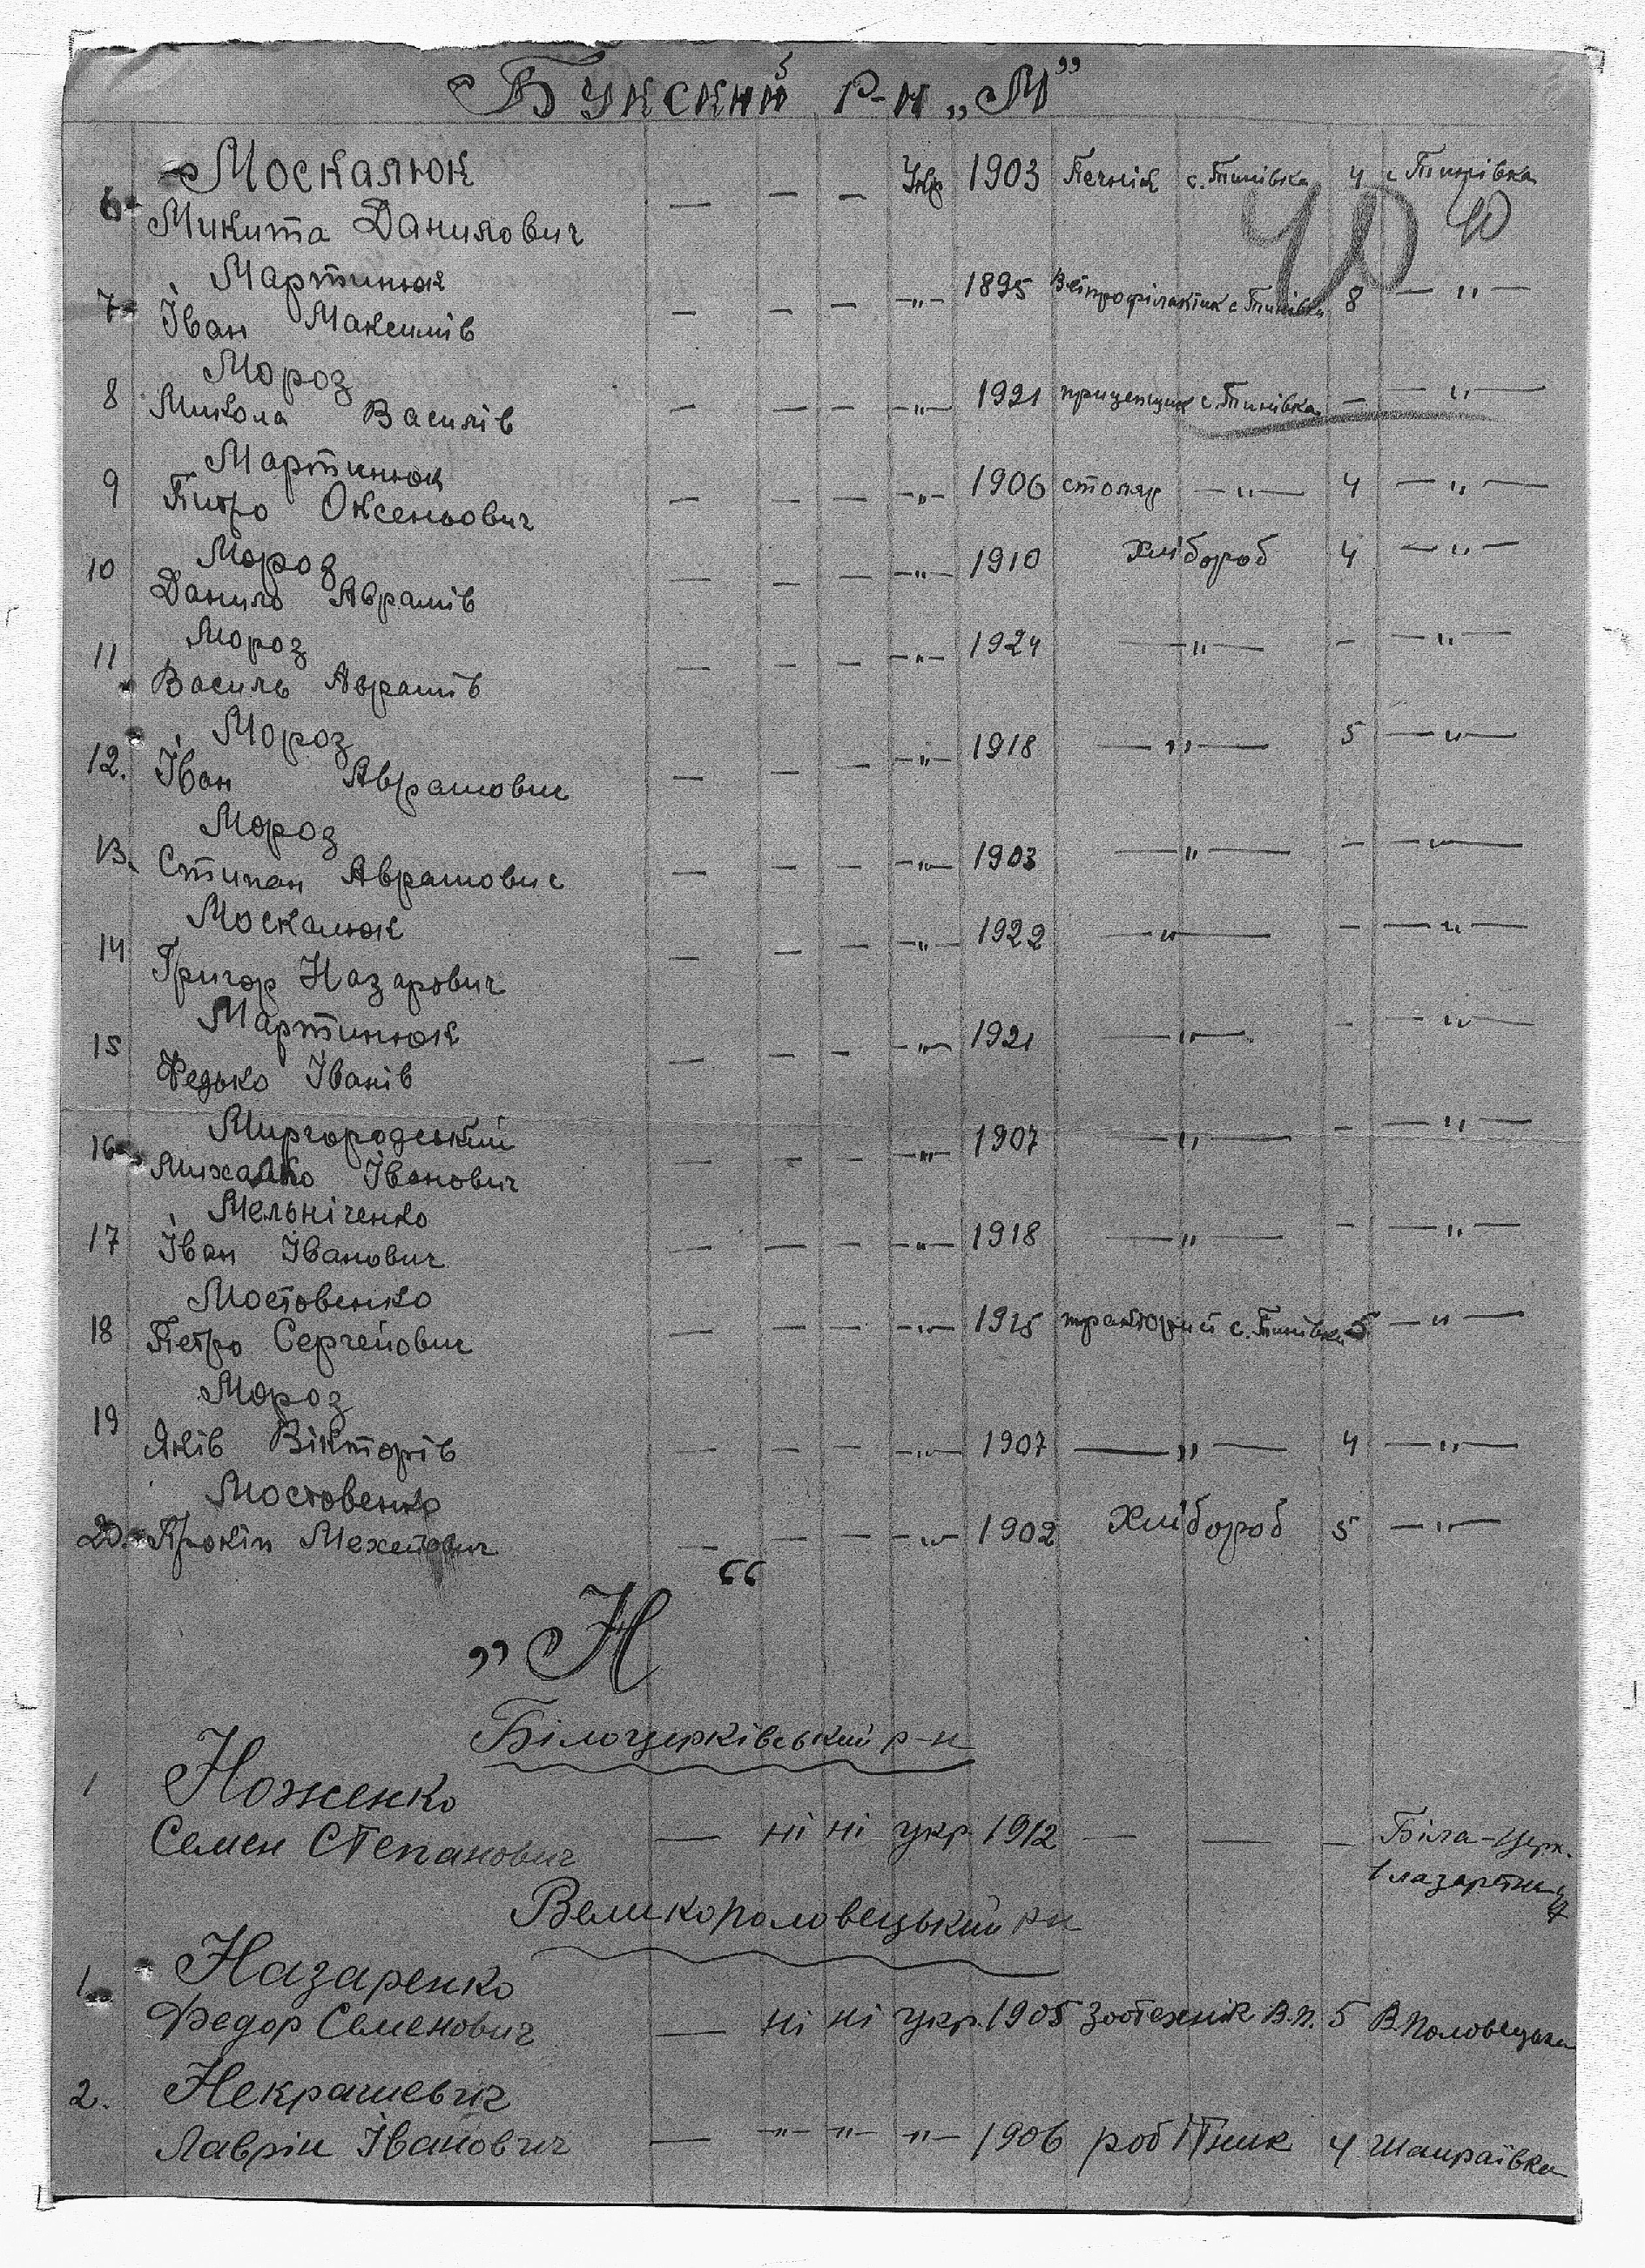 Букский р-н „М”
Москалюк — — — Укр 1903 Печнік с. Тинівка 4 с Тинівка
6 Микита Данилович
40 40
Мартинюк
7 Іван Максимів — — — -„- 1895 с Тинівка 8 — „ —
Мороз
8 Микола Василів — — — -„- 1921 прицепщик с. Тинівка — — „ —
Мартинюк
9 Питро Оксеньович — — — -„- 1906 столяр — „ — 4 — „ —
Мороз
10 Данило Аврамів — — — -„- 1910 Хлібороб 4 — „ —
Мороз
11 Василь Аврамів — — — -„- 1924 — „ — - — „ —
Мороз
12. Іван Аврамович — — — -„- 1918 — „ — 5 — „ —
Мороз
13. Степан Аврамович — — — -„- 1903 — „ — - — „ —
Москалюк
14 Григор Назарович — — — -„- 1922 — „ — - — „ —
Мартинюк
15 Федько Іванів — — — -„- 1921 — „ — - — „ —
Миргородський
16 Михалко Іванович — — — -„- 1907 — „ — - — „ —
Мельніченко
17 Іван Іванович — — — -„- 1918 — „ — - — „ —
Мостовенко
18 Петро Сергейович — — — -„- 1915 с. Тинівка 5 — „ —
Мороз
19 Яків Вікторів — — — -„- 1907 — „ — 4 — „ —
Мостовенко
20. Прокіп — — — -„- 1902 Хлібороб 5 — „ —
„Н“
Білоцерківський р-н
1 Ноженко
Семен Степанович — ні ні укр. 1912 — — — Біла-Церк.
Великополовецький рн
1. Назаренко
Федор Семенович — ні ні укр. 1905 Зоотехнік В.П. 5 В. Половецьке
2. Некрашевич
Лаврін Іванович — -„- -„- -„- 1906 робітник 4 Шамраївка